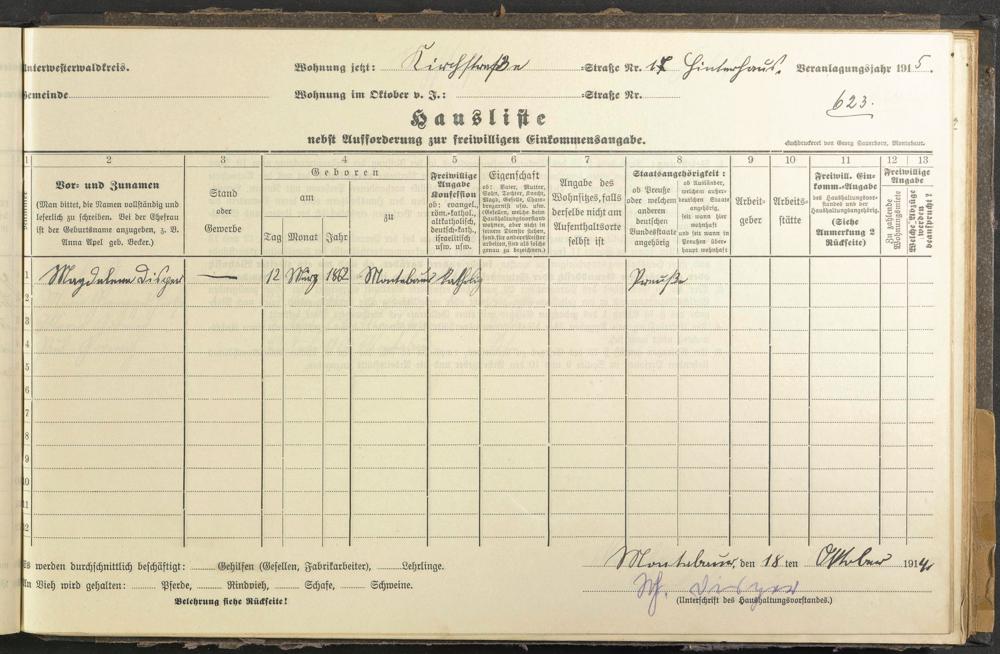 Unterwesterwaldkreis. Wohnung jetzt: Kirchstraße =Straße Nr. 17 Hinterhaus. Veranlagungsjahr 1915.
Gemeinde Wohnung im Oktober v. J.: =Straße Nr.
623.
Hausliste
nebst Aufforderung zur freiwilligen Einkommensangabe.
Buchdruckerei von Georg Sauerborn, Montabaur.
1 2 3 4 5 6 7 8 9 10 11 12 13
Vor- und Zunamen
(Man bittet, die Namen vollständig und
leserlich zu schreiben. Bei der Ehefrau
ist der Geburtsname anzugeben, z. B.
Anna Apel geb. Becker.)
Stand
oder
Gewerbe
Geboren
am
Tag Monat Jahr
zu
Freiwillige
Angabe
Konfession
ob: evangel.,
röm.-kathol.,
altkatholisch,
deutsch-kath.,
israelitisch
usw. usw.
Eigenschaft
ob: Vater, Mutter,
Sohn, Tochter, Knecht,
Magd, Geselle, Cham-
bregarnist usw. usw.
(Gesellen, welche beim
Haushaltungsvorstand
wohnen, aber nicht in
seinem Dienste stehen,
sond. für andere Meister
arbeiten, sind als solche
genau zu bezeichnen.)
Angabe des
Wohnsitzes, falls
derselbe nicht am
Aufenthaltsorte
selbst ist
Staatsangehörigkeit:
ob Preuße
oder welchem
anderen
deutschen
Bundesstaate
angehörig
ob Ausländer,
welchem außer-
deutschen Staate
angehörig,
seit wann hier
wohnhaft
und seit wann in
Preußen über-
haupt wohnhaft
Arbeit-
geber
Arbeits-
stätte
Freiwill. Ein-
komm.-Angabe
des Haushaltungsvor-
standes und der
Haushaltungsangehörig.
(Siehe
Anmerkung 2
Rückseite)
Freiwillige
Angabe
Zu zahlende
Wohnungsmiete
Welche Abzüge
werden
beansprucht?
1 Magdalena Disper — 12 März 1862 Montabaur kathol. Preuße
2
3
4
5
6
7
8
9
10
11
12
Es werden durchschnittlich beschäftigt: Gehilfen (Gesellen, Fabrikarbeiter), Lehrlinge.
An Vieh wird gehalten: Pferde, Rindvieh, Schafe, Schweine.
Belehrung siehe Rückseite!
Montabaur, den 18 ten Oktober 1914
M. Disper
(Unterschrift des Haushaltungsvorstandes.)